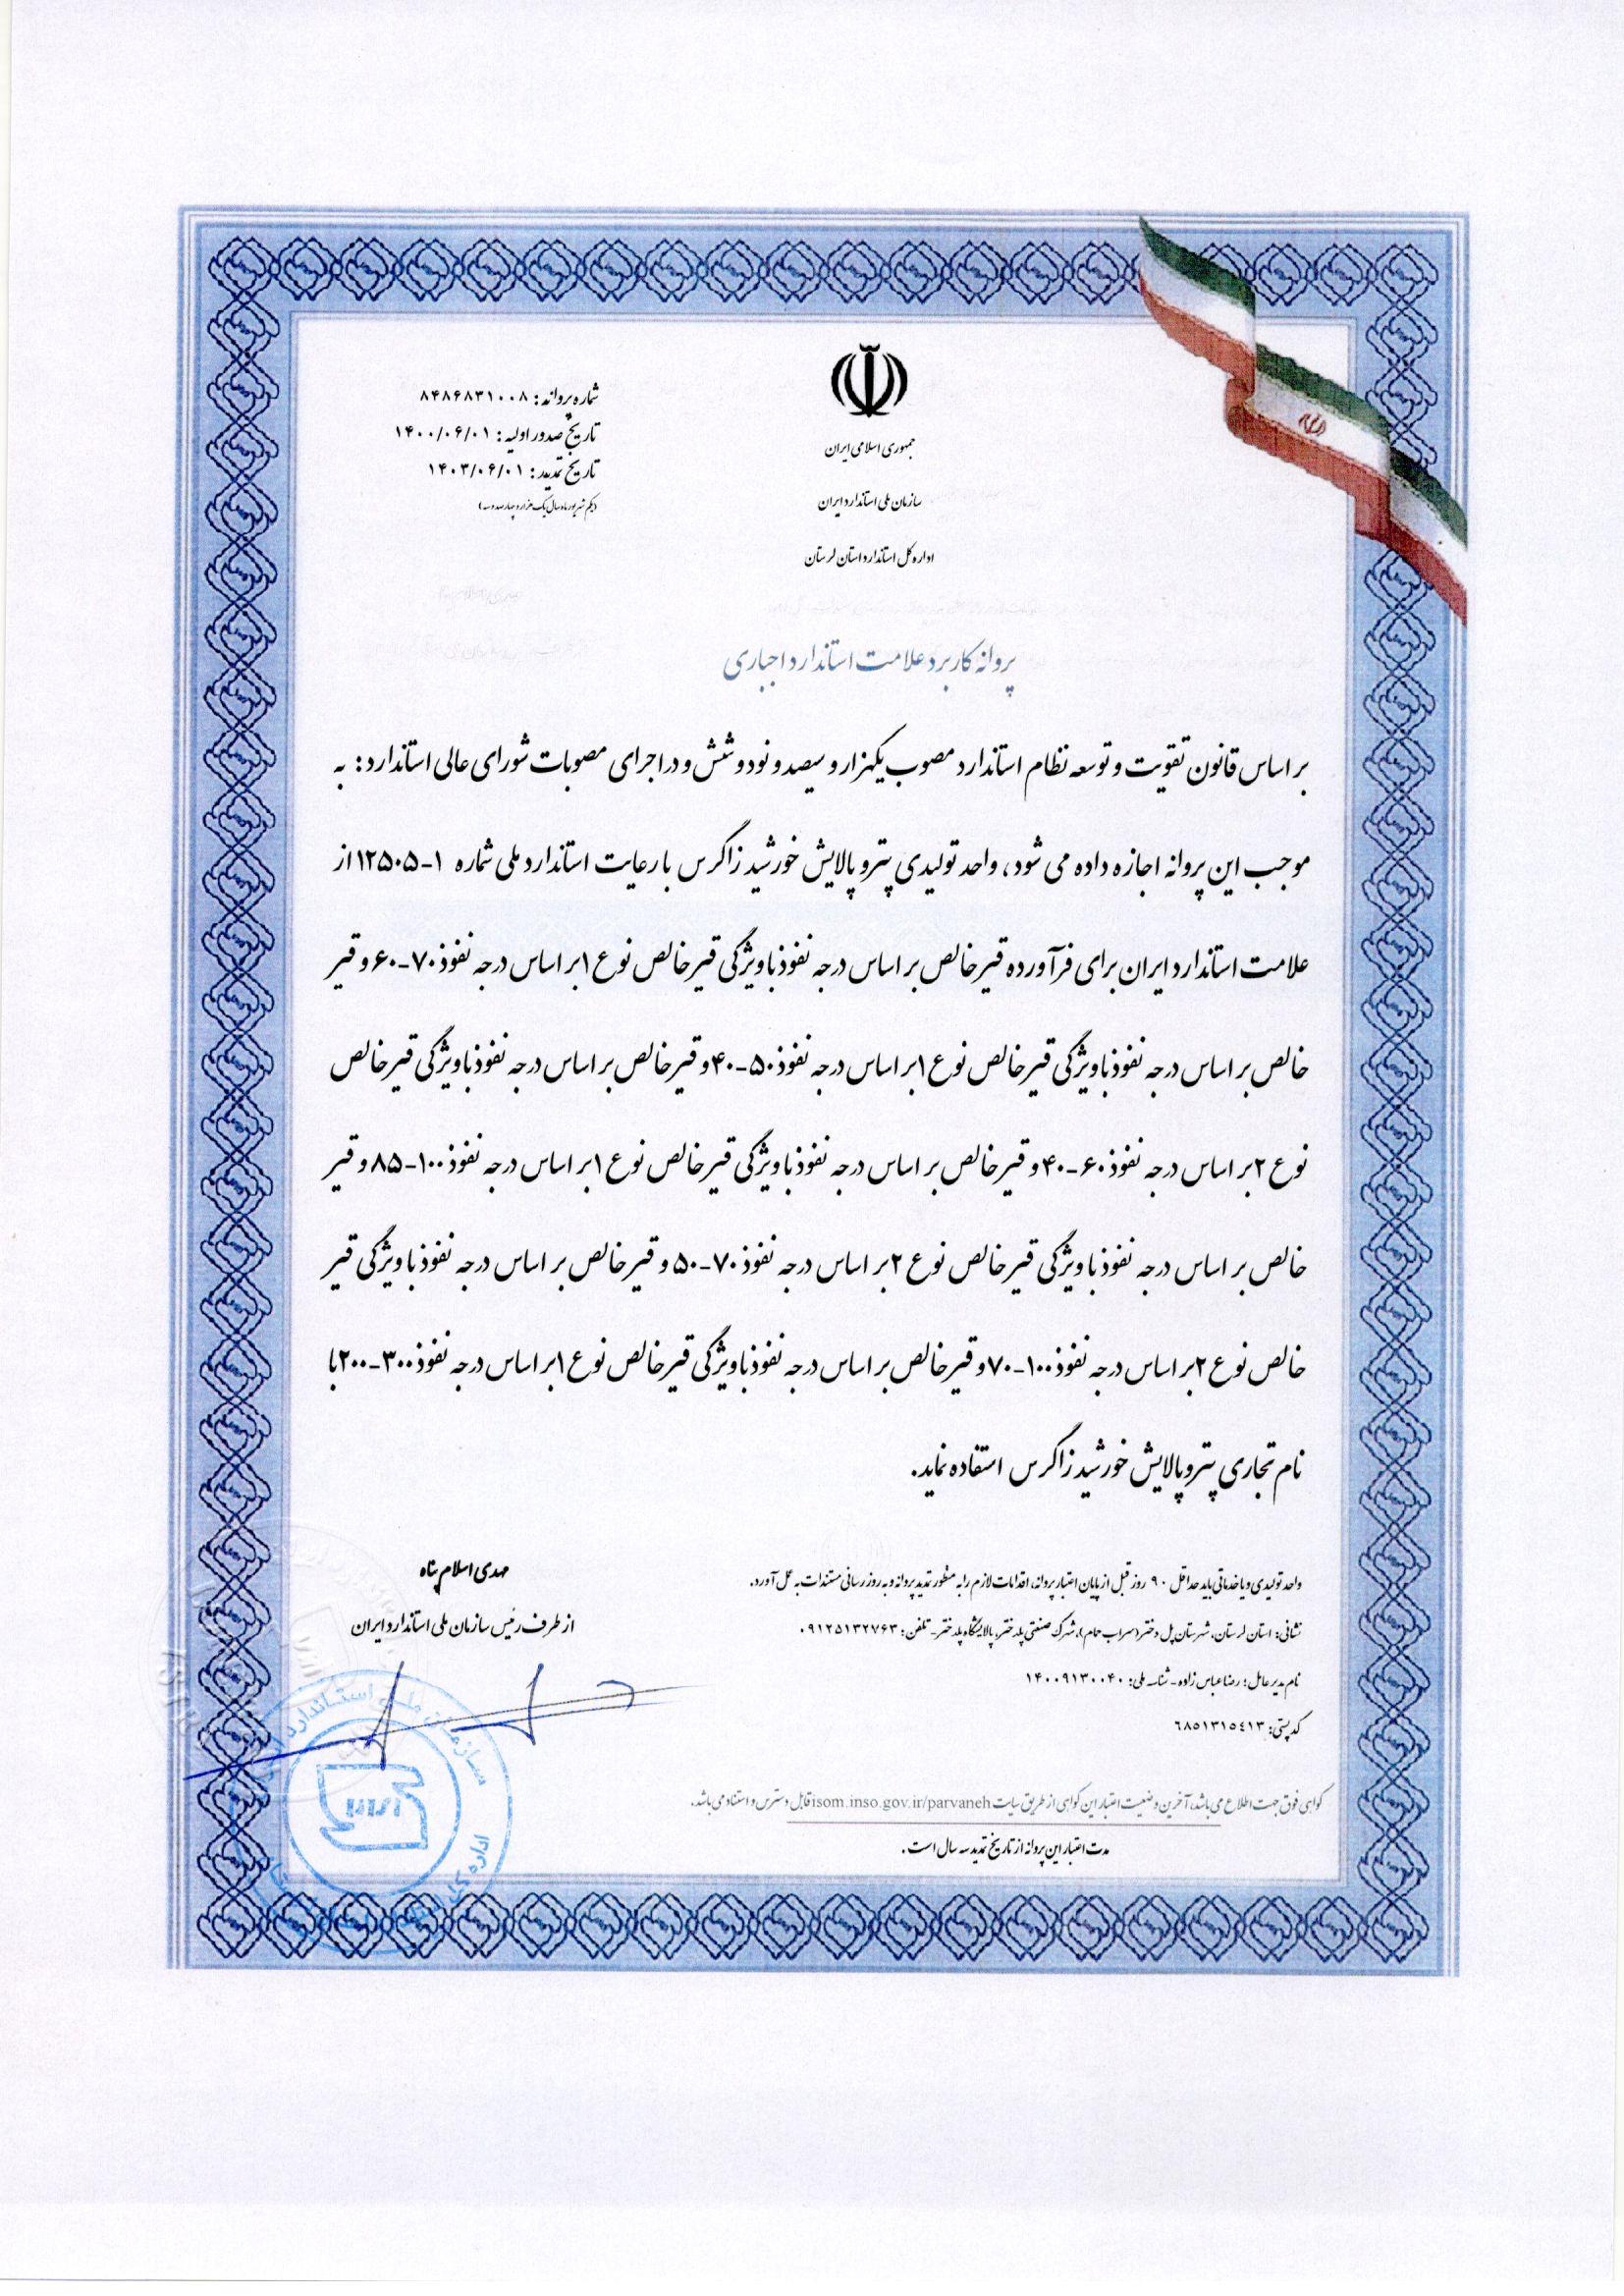 جمهوری اسلامی ایران
سازمان ملی استاندارد ایران
اداره کل استاندارد استان لرستان
شماره پروانه: ۸۴۸۶۸۳۱۰۰۸
تاریخ صدور اولیه: ۱۴۰۰/۰۶/۰۱
تاریخ تمدید: ۱۴۰۳/۰۶/۰۱
(یکم شهریور ماه سال یک هزار و چهارصد و سه)
پروانه کاربرد علامت استاندارد اجباری
بر اساس قانون تقویت و توسعه نظام استاندارد مصوب یکهزار و سیصد و نود و شش و در اجرای مصوبات شورای عالی استاندارد: به
موجب این پروانه اجازه داده می شود، واحد تولیدی پترو پالایش خورشید زاگرس با رعایت استاندارد ملی شماره ۱-۱۲۵۰۵ از
علامت استاندارد ایران برای فرآورده قیر خالص بر اساس درجه نفوذ با ویژگی قیر خالص نوع ۱ بر اساس درجه نفوذ ۷۰-۶۰ و قیر
خالص بر اساس درجه نفوذ با ویژگی قیر خالص نوع ۱ بر اساس درجه نفوذ ۵۰-۴۰ و قیر خالص بر اساس درجه نفوذ با ویژگی قیر خالص
نوع ۲ بر اساس درجه نفوذ ۶۰-۴۰ و قیر خالص بر اساس درجه نفوذ با ویژگی قیر خالص نوع ۱ بر اساس درجه نفوذ ۱۰۰-۸۵ و قیر
خالص بر اساس درجه نفوذ با ویژگی قیر خالص نوع ۲ بر اساس درجه نفوذ ۷۰-۵۰ و قیر خالص بر اساس درجه نفوذ با ویژگی قیر
خالص نوع ۲ بر اساس درجه نفوذ ۱۰۰-۷۰ و قیر خالص بر اساس درجه نفوذ با ویژگی قیر خالص نوع ۱ بر اساس درجه نفوذ ۳۰۰-۲۰۰ با
نام تجاری پترو پالایش خورشید زاگرس استفاده نماید.
واحد تولیدی و یا خدماتی باید حداقل ۹۰ روز قبل از پایان اعتبار پروانه، اقدامات لازم را به منظور تمدید پروانه و به روز رسانی مستندات به عمل آورد.
نشانی: استان لرستان، شهرستان پل دختر (سراب حمام)، شهرک صنعتی پلدختر، پالایشگاه پلدختر - تلفن: ۰۹۱۲۵۱۳۲۷۶۳
نام مدیر عامل: رضا عباس زاده - شناسه ملی: ۱۴۰۰۹۱۳۰۰۴۰
کد پستی: ٦٨٥١٣١٥٤١٣
مهدی اسلام پناه
از طرف رئیس سازمان ملی استاندارد ایران
سازمان ملی استاندارد
اداره کل
گواهی فوق جهت اطلاع می باشد، آخرین وضعیت اعتبار این گواهی از طریق سایت isom.inso.gov.ir/parvaneh قابل دسترس و استناد می باشد.
مدت اعتبار این پروانه از تاریخ تمدید سه سال است.